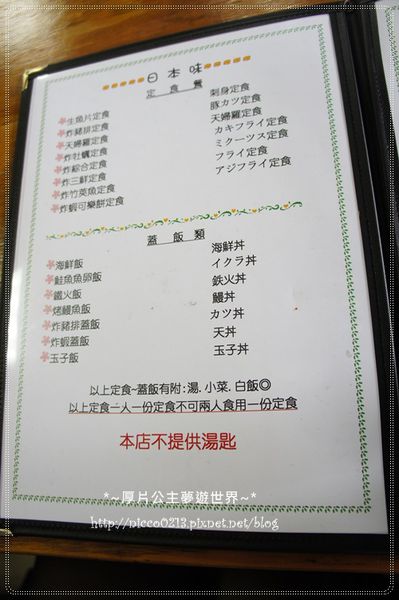 日本味
定食舊
生魚片定食 刺身定食
炸豬排定食 豚カツ定食
天婦羅定食 天婦羅定食
炸牡蠣定食 カキフライ定食
炸綜合定食 ミクーツス定食
炸三鮮定食 フライ定食
炸竹莢魚定食 アジフライ定食
炸蝦可樂餅定食
蓋飯類
海鮮飯 海鮮丼
鮭魚魚卵飯 イクラ丼
鐵火飯 鉄火丼
烤鰻魚飯 鰻丼
炸豬排蓋飯 カツ丼
炸蝦蓋飯 天丼
玉子飯 玉子丼
以上定食~蓋飯有附:湯.小菜.白飯◎
以上定食一人一份定食不可兩人食用一份定食
本店不提供湯匙
*~厚片公主夢遊世界~*
http://nicco0213.pixnet.net/blog